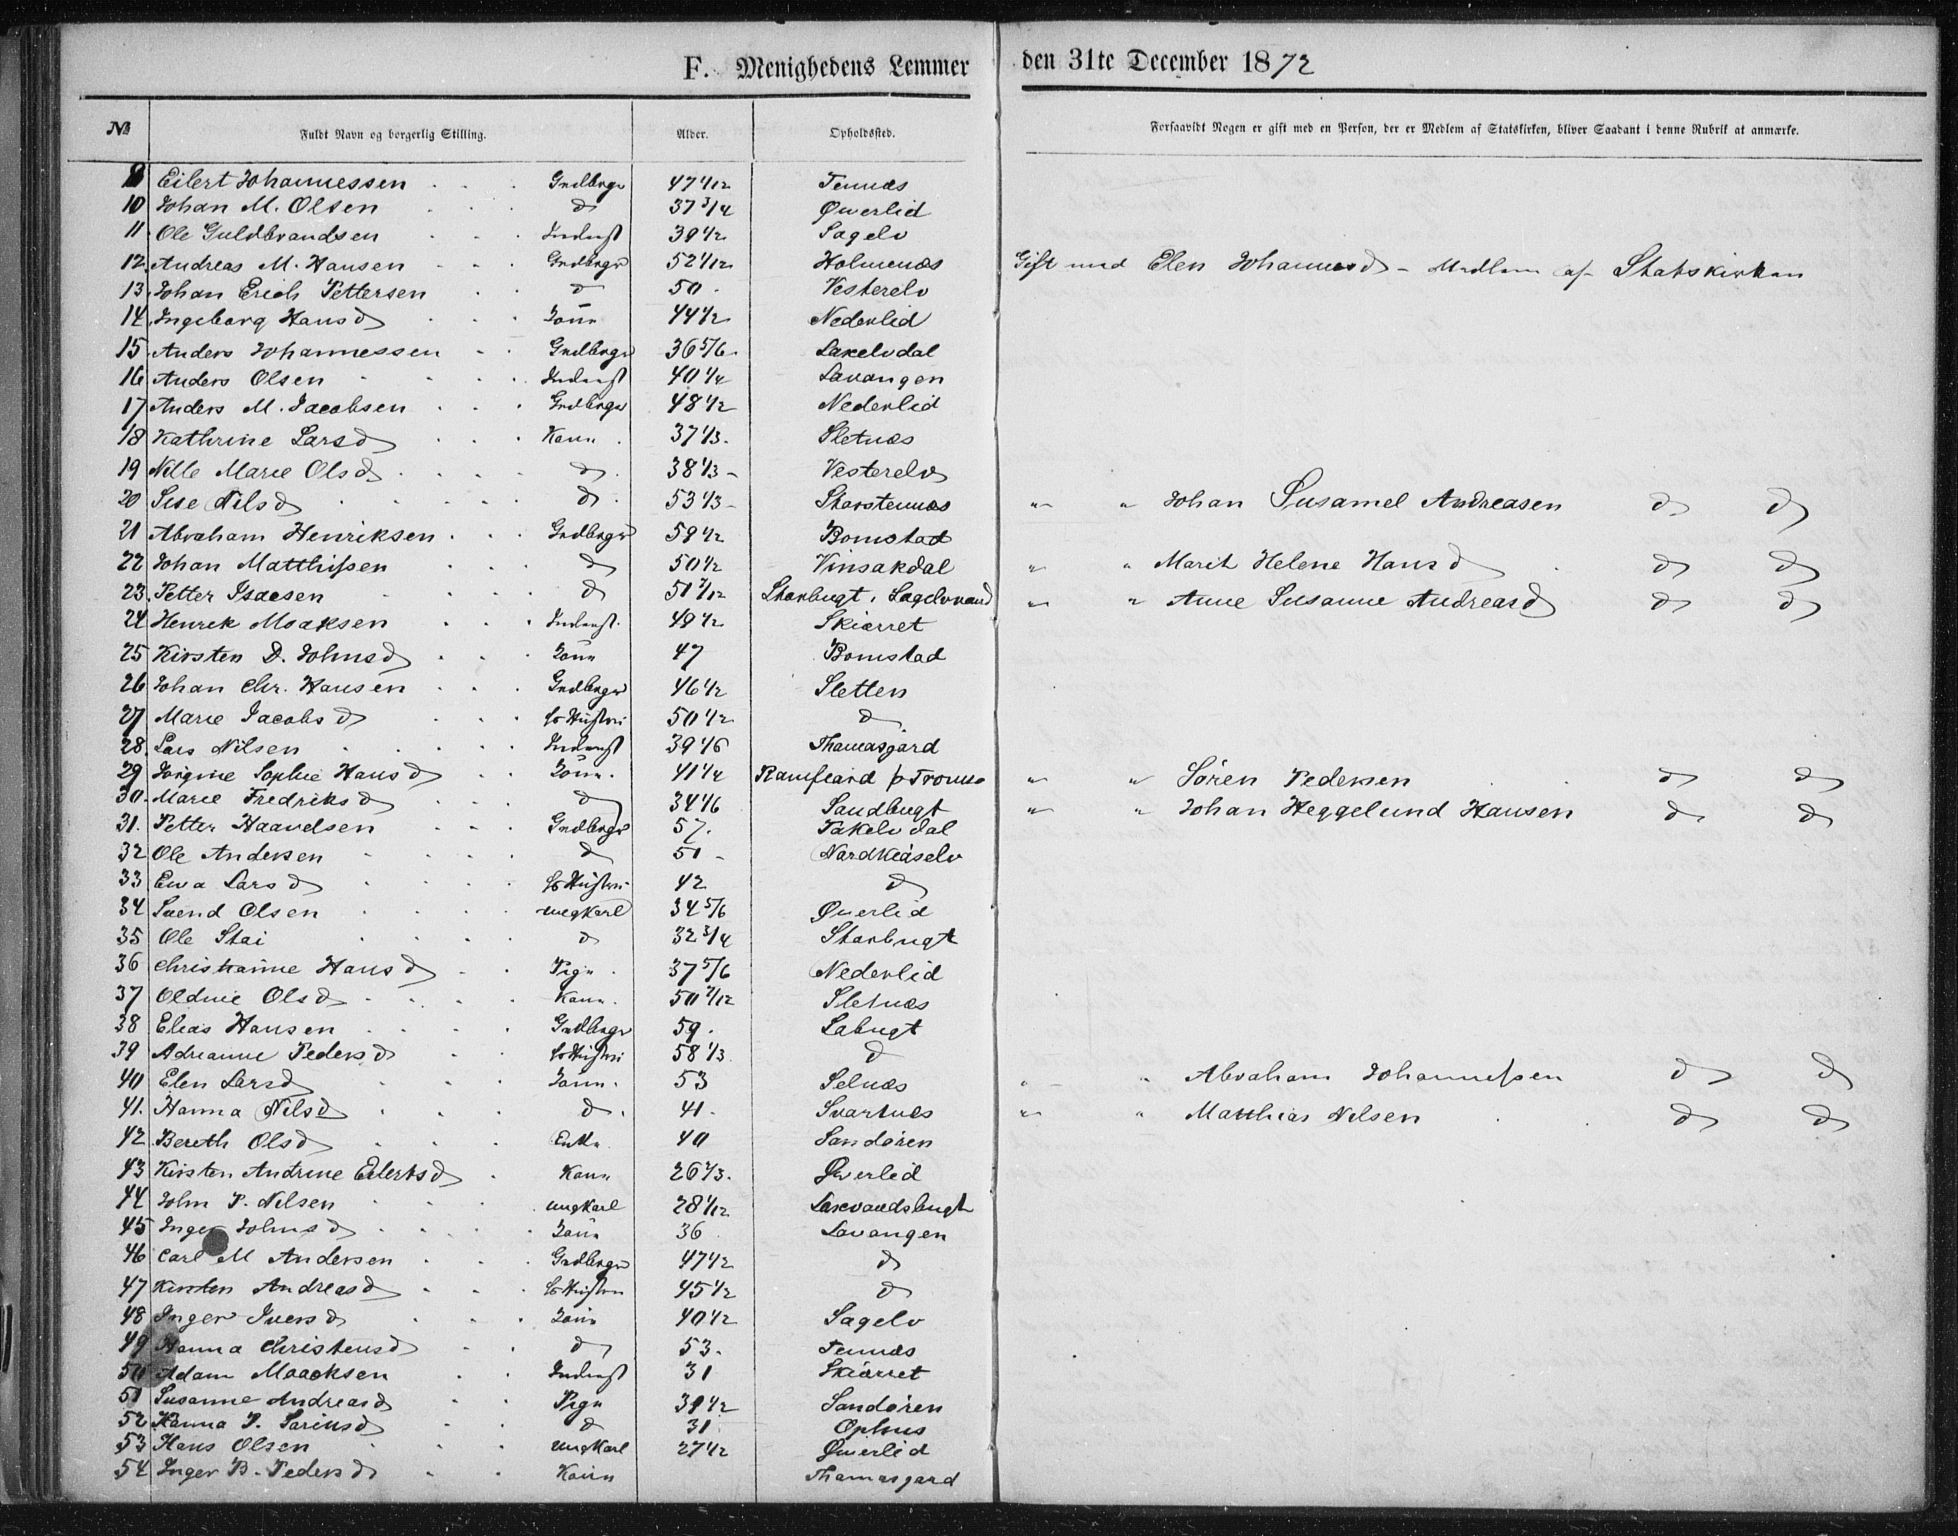 F. Menighedens Lemmer den 31te December 1872
No Fuldt Navn og borgerlig Stilling. Alder. Opholdssted. Forsaavidt Nogen er gift med en Person, der er Medlem af Statskirken, bliver Saadant i denne Rubrik at anmærke.
9 Eilert Johannessen Grdbrgr 47 1/12 Tennæs
10 Johan M. Olsen d 37 3/4 Øverlid
11 Ole Guldbrandsen Inderst 39 1/2 Sagelv
12 Andreas M. Hansen Grdbrgr 52 1/12 Holmenæs Gift med Elen Johannesd - Medlem af Statskirken
13 Johan Erich Pettersen d 50 Vesterelv
14 Ingeborg Hansd 44 1/2 Nederlid
15 Anders Johannessen Grdbrgr 36 5/6 Laxelvdal
16 Anders Olsen Inderst 40 1/4 Lavangen
17 Anders M. Jacobsen Grdbrgr 48 1/2 Nederlid
18 Kathrine Larsd Kone 37 1/3 Sletnæs
19 Nille Marie Olsd d 38 1/3 Vesterelv
20 Sise Nilsd d 53 1/3 Storstennæs " " Johan Susamel Andreasen d d
21 Abraham Henriksen Grdbrgr 59 1/2 Bomstad
22 Johan Matthissen d 50 1/2 Vinsakdal " " Marit Helene Hansd d d
23 Petter Isacsen d 51 7/12 Storbugt, Sagelvvand " " Anne Susanne Andreasd d d
24 Henrik Moaksen Inderst 49 1/2 Skiærret
25 Kirsten D. Johnsd 47 Bomstad
26 Johan Chr. Hansen Grdbrgr 46 1/2 Sletten
27 Marie Jacobsd Hustru 50 1/2 d
28 Lars Nilsen Inderst 39 1/6 Thomasjord
29 Jörgine Sophie Hansd 41 1/4 Ramfiord p Tromsø " " Sören Pedersen d d
30 Marie Fredriksd d 34 1/6 Sandbugt " " Johan Heggelund Hansen d d
31 Petter Haavelsen Grdbrgr 57 Takelvdal
32 Ole Andersen d 51 Nordkiåselv
33 Ewa Larsd Hustru 42 d
34 Svend Olsen ungkarl 34 5/6 Øverlid
35 Ole Stai d 32 3/4 Storbugt
36 Christianne Hansd Pige 37 5/6 Nederlid
37 Oldine Olsd Kone 50 7/12 Sletnæs
38 Elias Hansen Grdbrgr 59 Labugt
39 Adrianne Pedersd Hustru 58 1/3 d
40 Elen Larsd 53 Selnæs " " Abraham Johannessen d d
41 Hanna Nilsd d 41 Svartnæs " " Matthias Nilsen d d
42 Bereth Olsd Enke 40 Sandøren
43 Kirsten Andrine Eilertsd Kone 26 2/3 Øverlid
44 John P. Nilsen ungkarl 28 1/12 Laxvandsbugt
45 Inger Johnsd 36 Lavangen
46 Carl M Andersen Grdbrgr 47 1/2 d
47 Kirsten Andreasd Hustru 45 1/2 d
48 Inger Iversd 40 1/2 Sagelv
49 Hanna Christensd d 53 Tennæs
50 Adam Moaksen Inderst 31 Skiærret
51 Susanne Andreasd Pige 39 1/2 Sandøren
52 Hanna P. Sariusd d 31 Ophus
53 Hans Olsen ungkarl 27 1/2 Øverlid
54 Inger B. Pedersd Kone Thomasjord